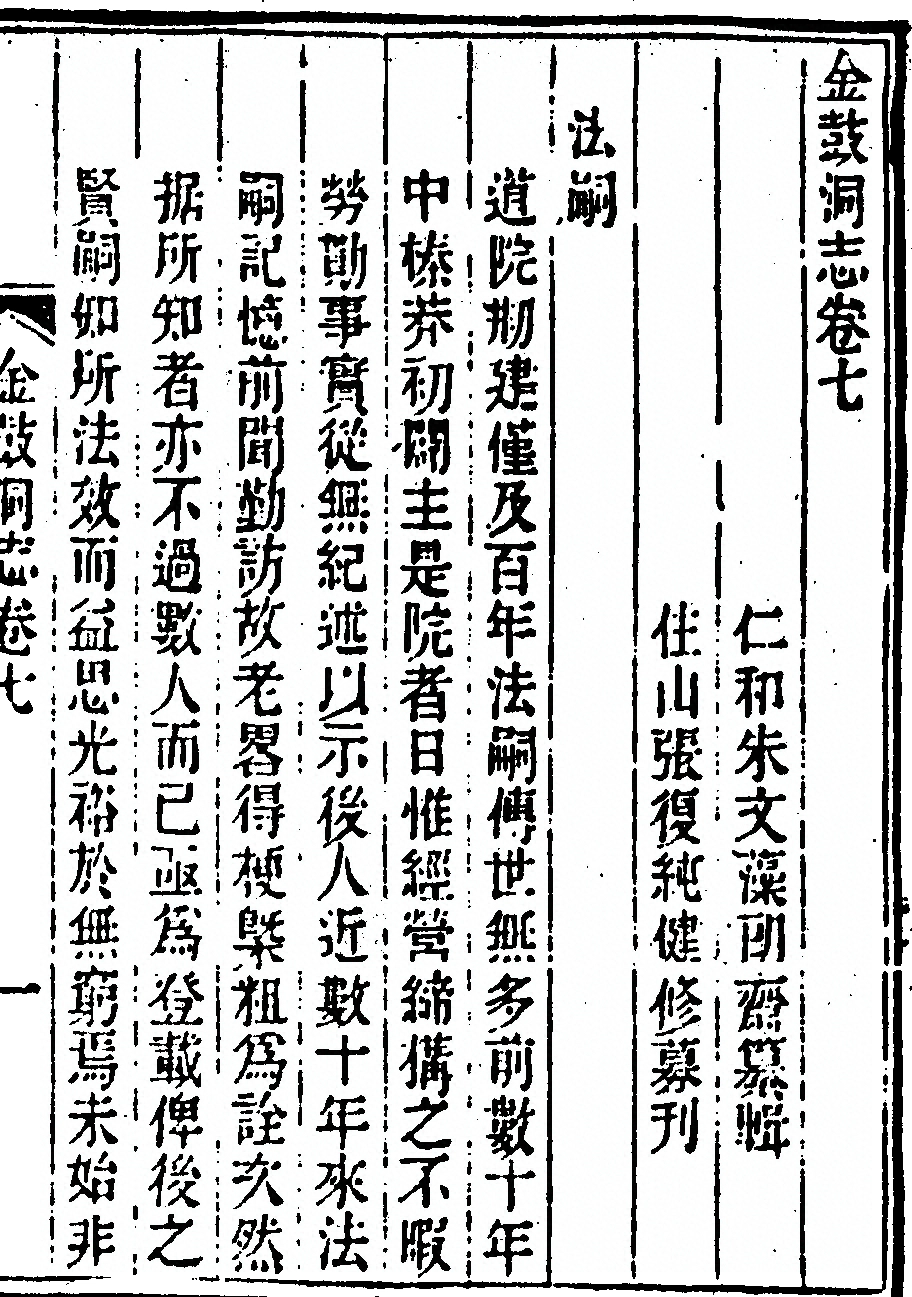 金鼓洞志卷七
仁和朱文藻朗齋纂輯
住山張復純健修募刊
法嗣
道院刱建僅及百年法嗣傳世無多前數十年
中榛莽初闢主是院者日惟經營締搆之不暇
勞勩事實從無紀述以示後人近數十年來法
嗣記憶前聞勤訪故老畧得梗槩粗為詮次然
据所知者亦不過數人而已亟為登載俾後之
賢嗣知所法效而益思光裕於無窮焉未始非
金鼓洞志卷七
一